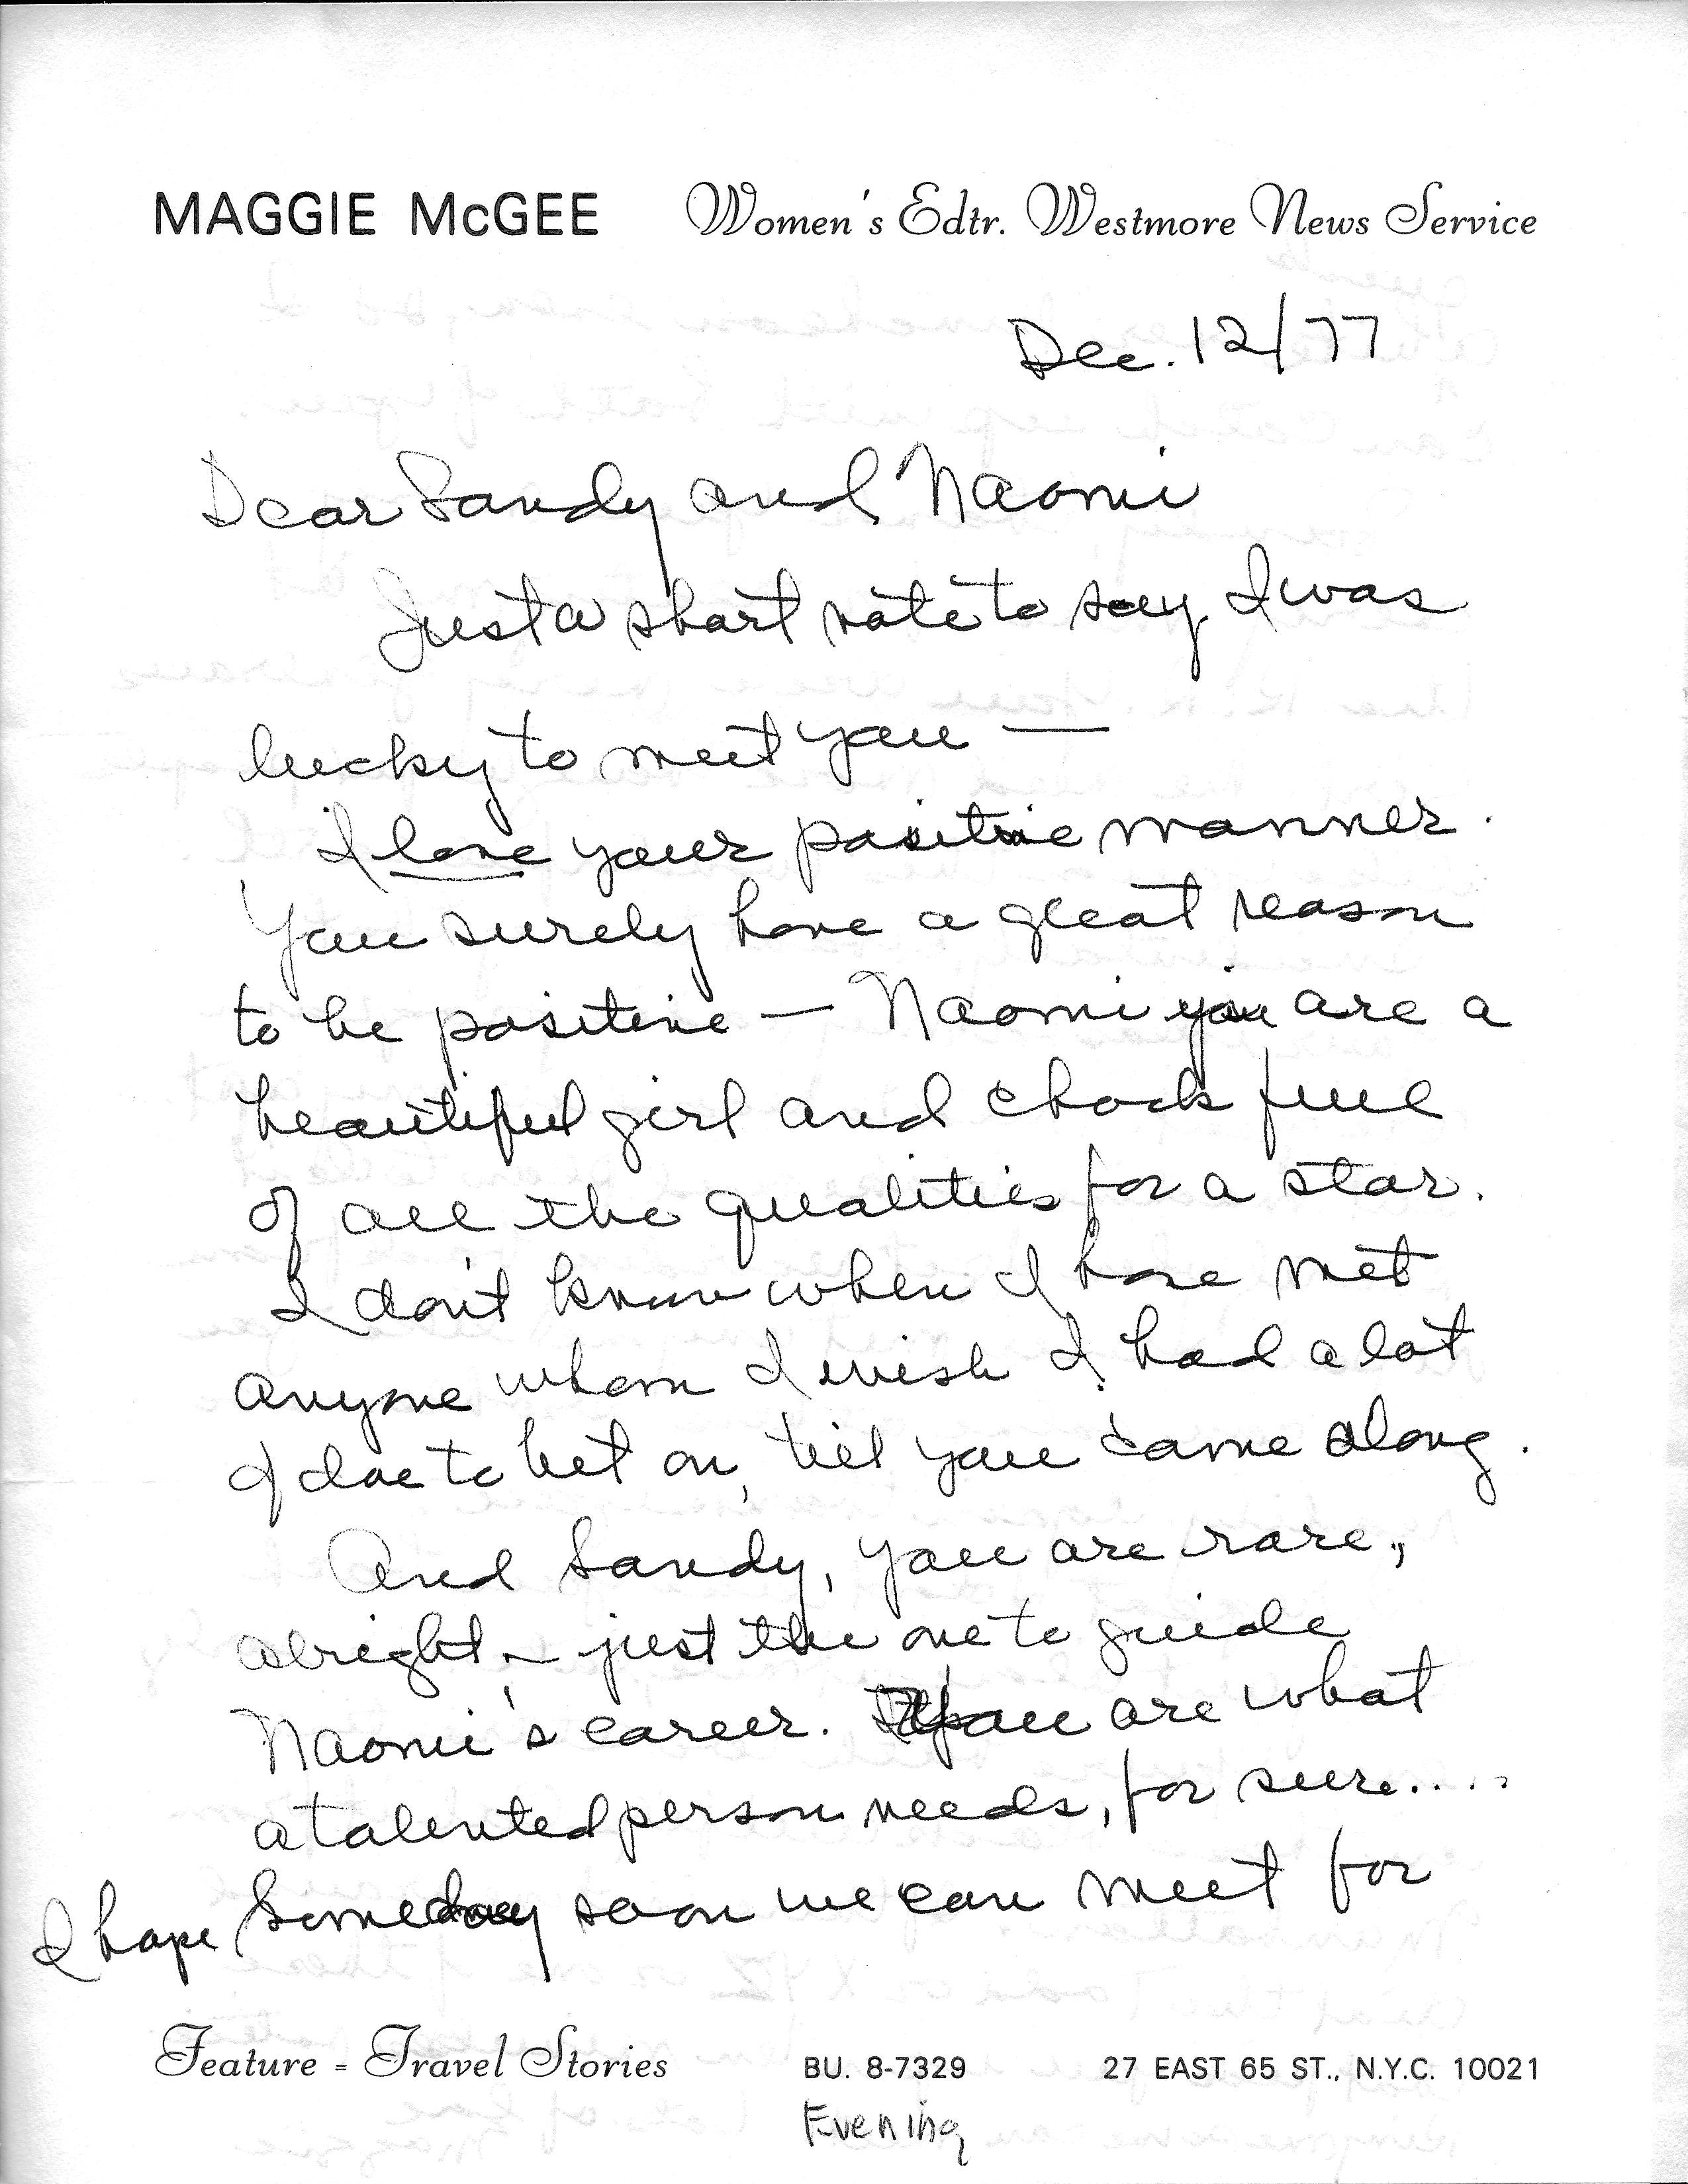 MAGGIE McGEE Women's Edtr. Westmore News Service
Dec. 12/77
Dear Sandy and Naomi
Just a short note to say I was
lucky to meet you —
I love your positive manner.
You surely have a great reason
to be positive — Naomi you are a
beautiful girl and chock full
of all the qualities for a star.
I don't know when I have met
anyone whom I wish I had a lot
of doe to bet on, till you came along.
And Sandy, you are rare,
alright — just the one to guide
Naomi's career. You are what
a talented person needs, for sure....
I hope Someday soon we can meet for
Feature - Travel Stories BU. 8-7329 27 EAST 65 ST., N.Y.C. 10021
Evening